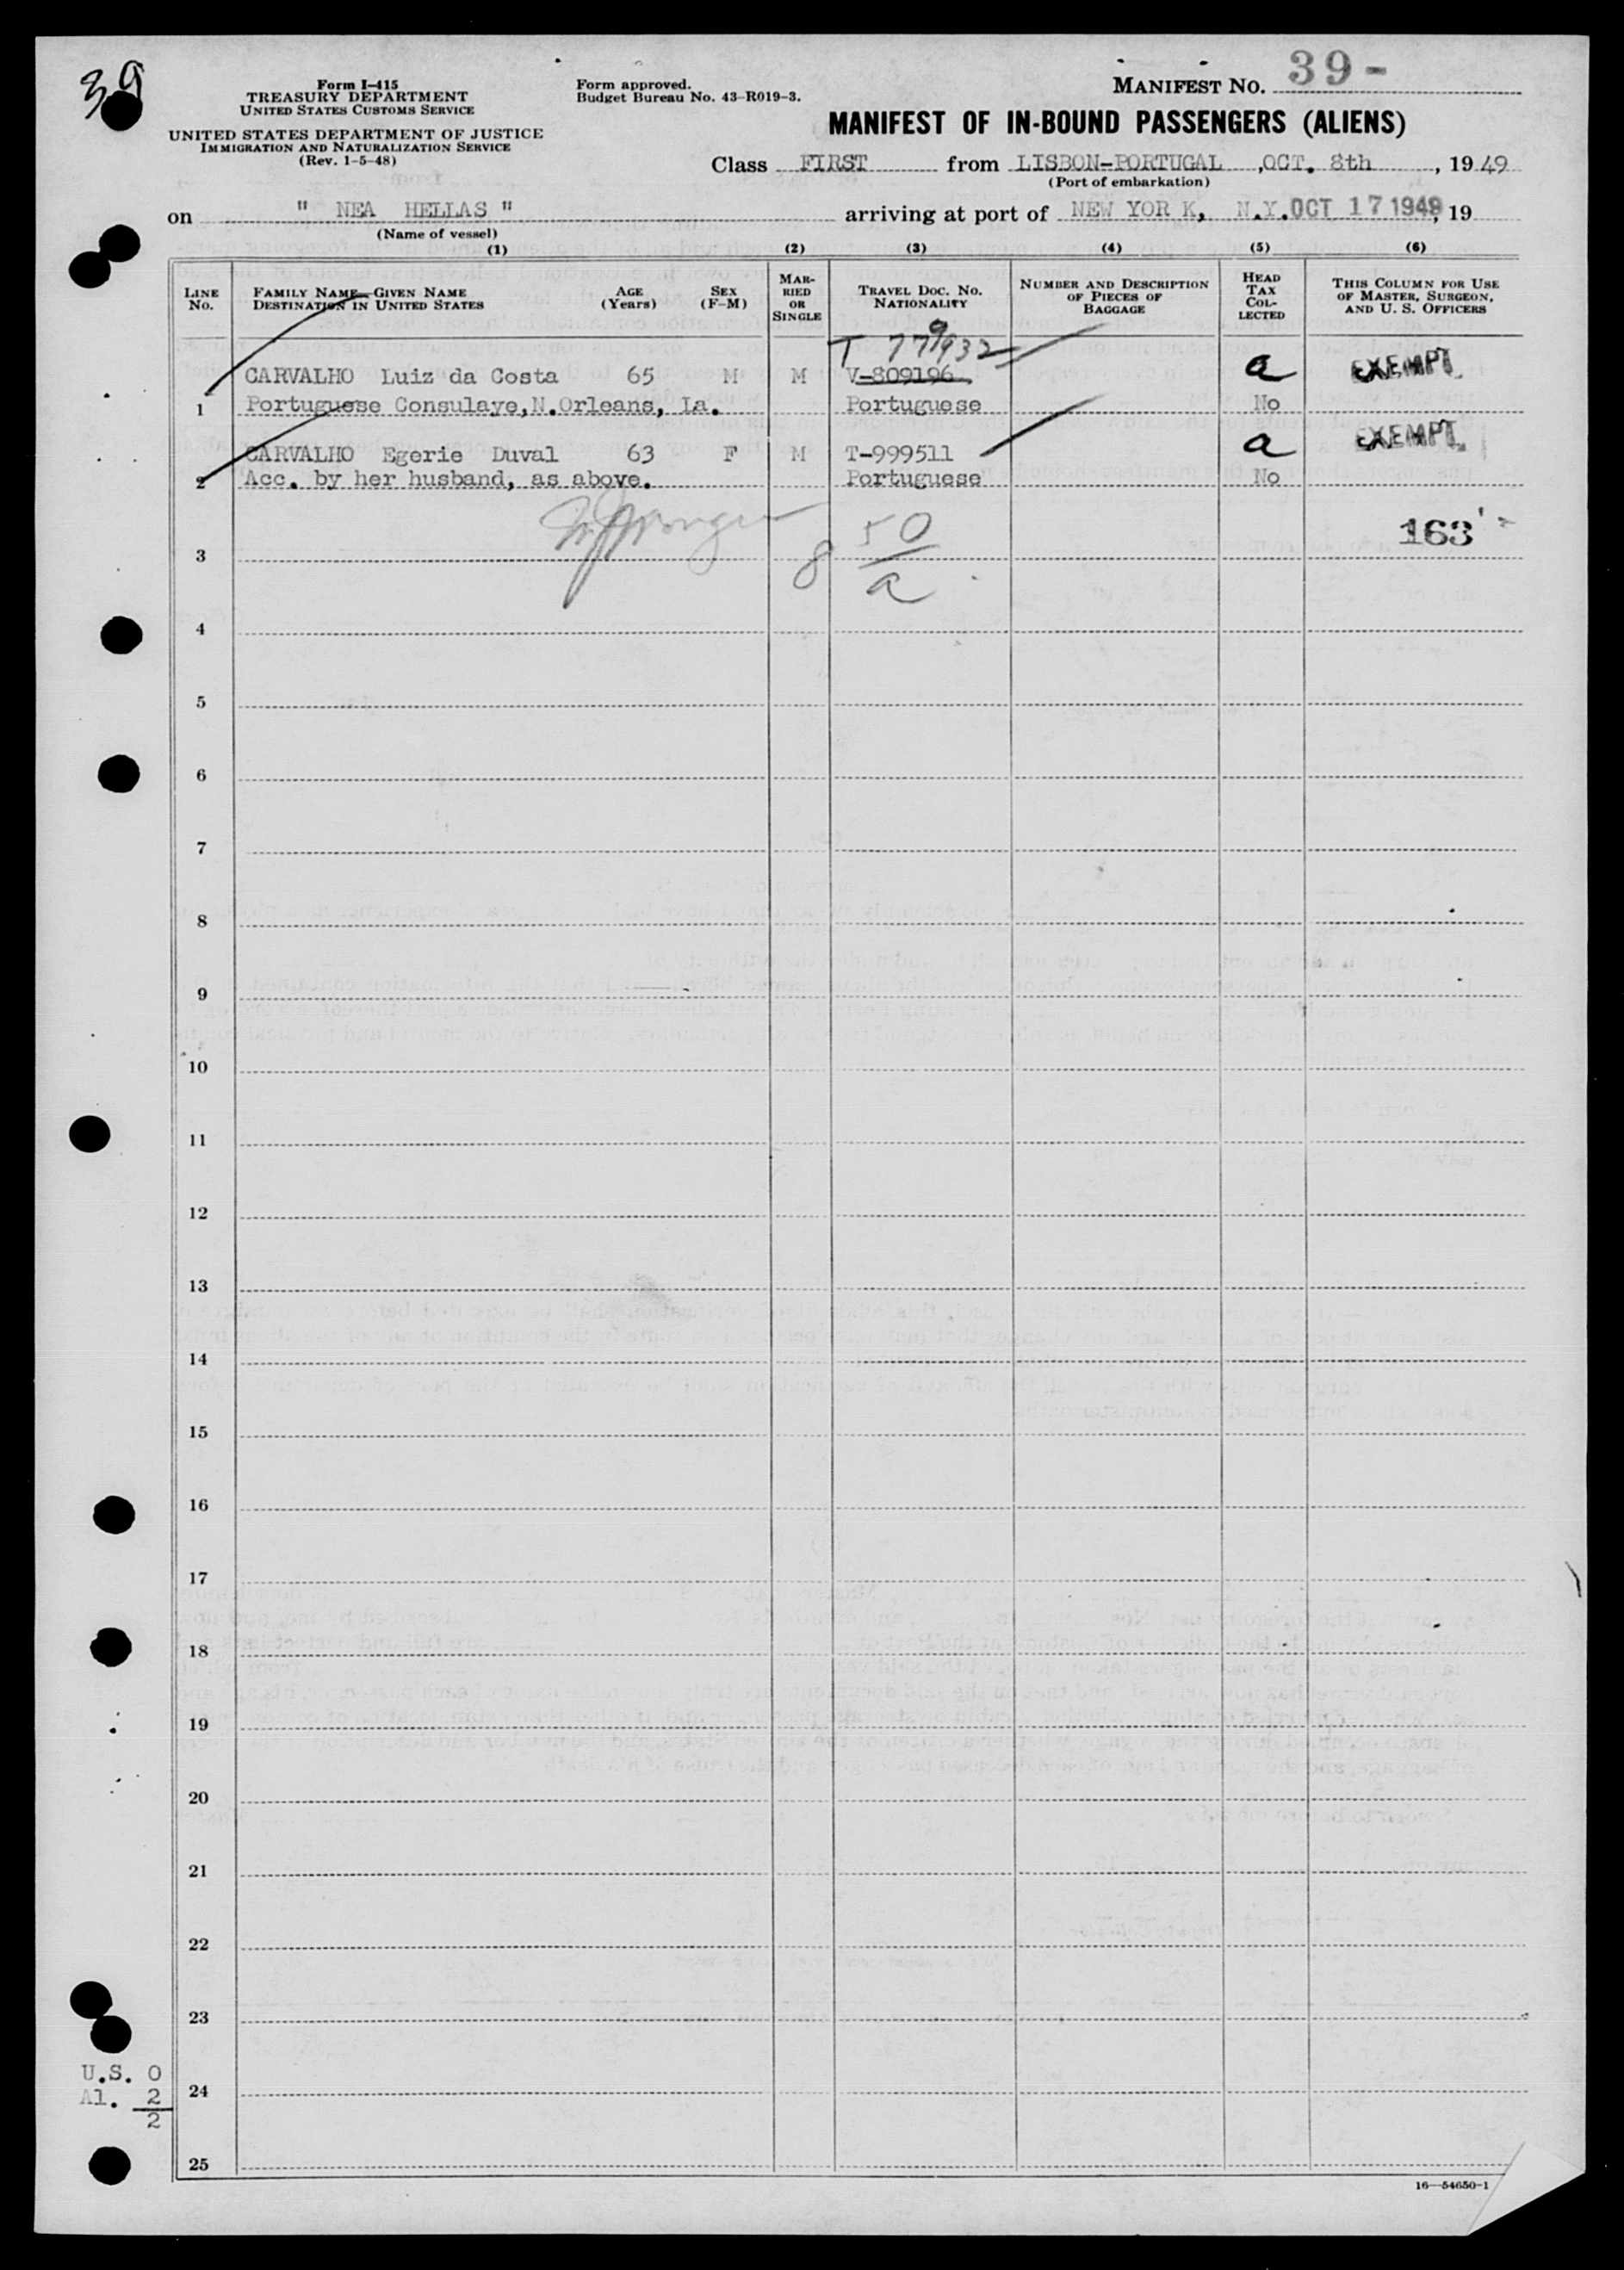 39
Form I-415
TREASURY DEPARTMENT
UNITED STATES CUSTOMS SERVICE
UNITED STATES DEPARTMENT OF JUSTICE
IMMIGRATION AND NATURALIZATION SERVICE
(Rev. 1-5-48)
Form approved.
Budget Bureau No. 43-R019-3.
MANIFEST NO. 39-
MANIFEST OF IN-BOUND PASSENGERS (ALIENS)
Class FIRST from LISBON-PORTUGAL ,OCT. 8th , 19 49
(Port of embarkation)
on " NEA HELLAS " arriving at port of NEW YOR K, N.Y. OCT 17 1949, 19
(Name of vessel)
(1) (2) (3) (4) (5) (6)
LINE NO.
FAMILY NAME—GIVEN NAME
DESTINATION IN UNITED STATES
AGE (Years)
SEX (F-M)
MARRIED OR SINGLE
TRAVEL DOC. NO.
NATIONALITY
NUMBER AND DESCRIPTION OF PIECES OF BAGGAGE
HEAD TAX COLLECTED
THIS COLUMN FOR USE OF MASTER, SURGEON, AND U. S. OFFICERS
CARVALHO Luiz da Costa 65 M M V-809196 a EXEMPT
1 Portuguese Consulaye,N.Orleans, La. Portuguese No
CARVALHO Egerie Duval 63 F M T-999511 a EXEMPT
2 Acc. by her husband, as above. Portuguese No
163
8 50
a
3
4
5
6
7
8
9
10
11
12
13
14
15
16
17
18
19
20
21
22
23
U.S. 0
Al. 2
2
24
25
16—54650-1